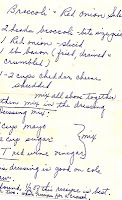 Broccoli - Red Onion Sala
2 heads broccoli - bite size pieces
1 Red onion - sliced
1 lb. bacon (fried, drained &
crumbled)
1-2 cups cheddar cheese
shredded
mix all above together
then mix in the dressing
Dressing mix:
cup mayo
cup sugar
T red wine vinegar
mix
is dressing is good on cole
slaw
of this recipe is best.